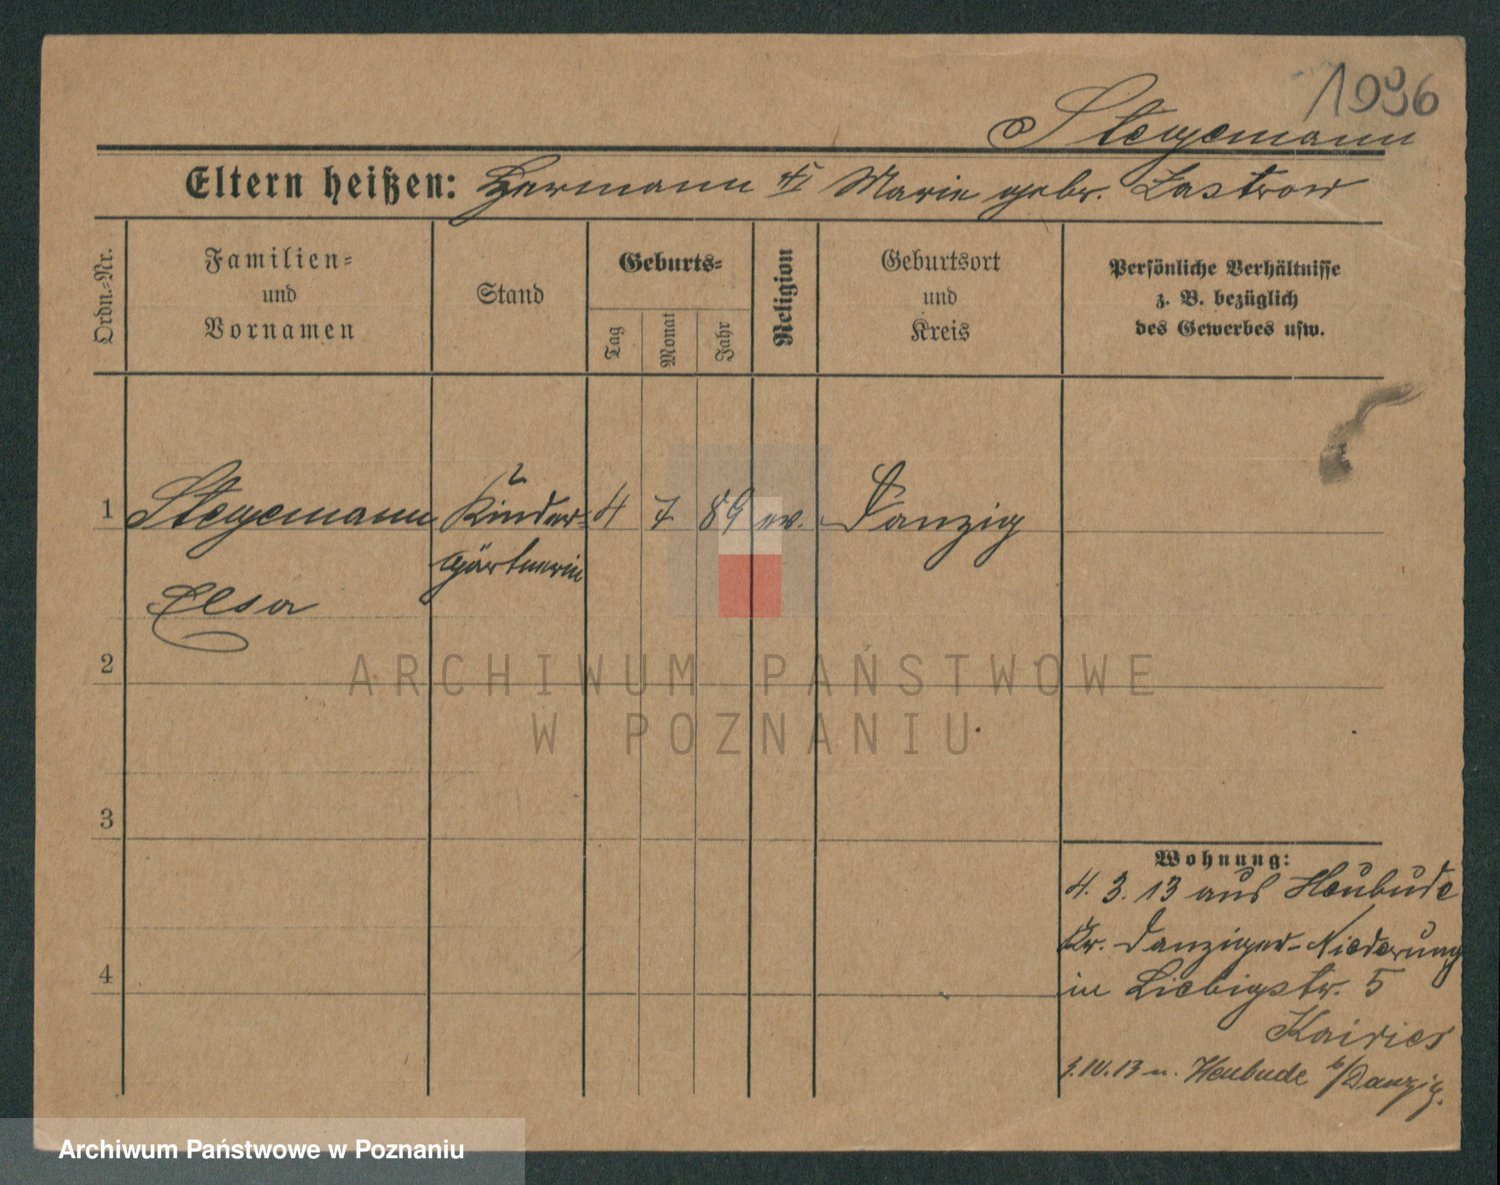 1096
Stegemann
Eltern heißen: Hermann & Marie gebr. Lastrow
Ordn.=Nr.
Familien=
und
Vornamen
Stand
Geburts=
Tag
Monat
Jahr
Religion
Geburtsort
und
Kreis
Persönliche Verhältnisse
z. B. bezüglich
des Gewerbes usw.
1 Stegemann Kinder= 4 7 89 ev. Danzig
gärtnerin
Elsa
2
ARCHIWUM PAŃSTWOWE
W POZNANIU
3
Wohnung:
4. 3. 13 aus Heubude
Kr. Danziger-Niederung
4
in Liebigstr. 5
Kairies
3.IV.13 n. Heubude b/Danzig.
Archiwum Państwowe w Poznaniu